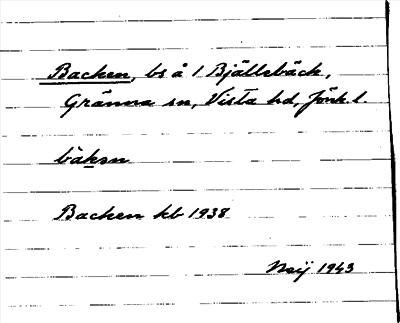 Backen, bs å 1 Bjällebäck,
Gränna sn, Vista hd, Jönk. l.
bàksn
Backen kb 1938
1943